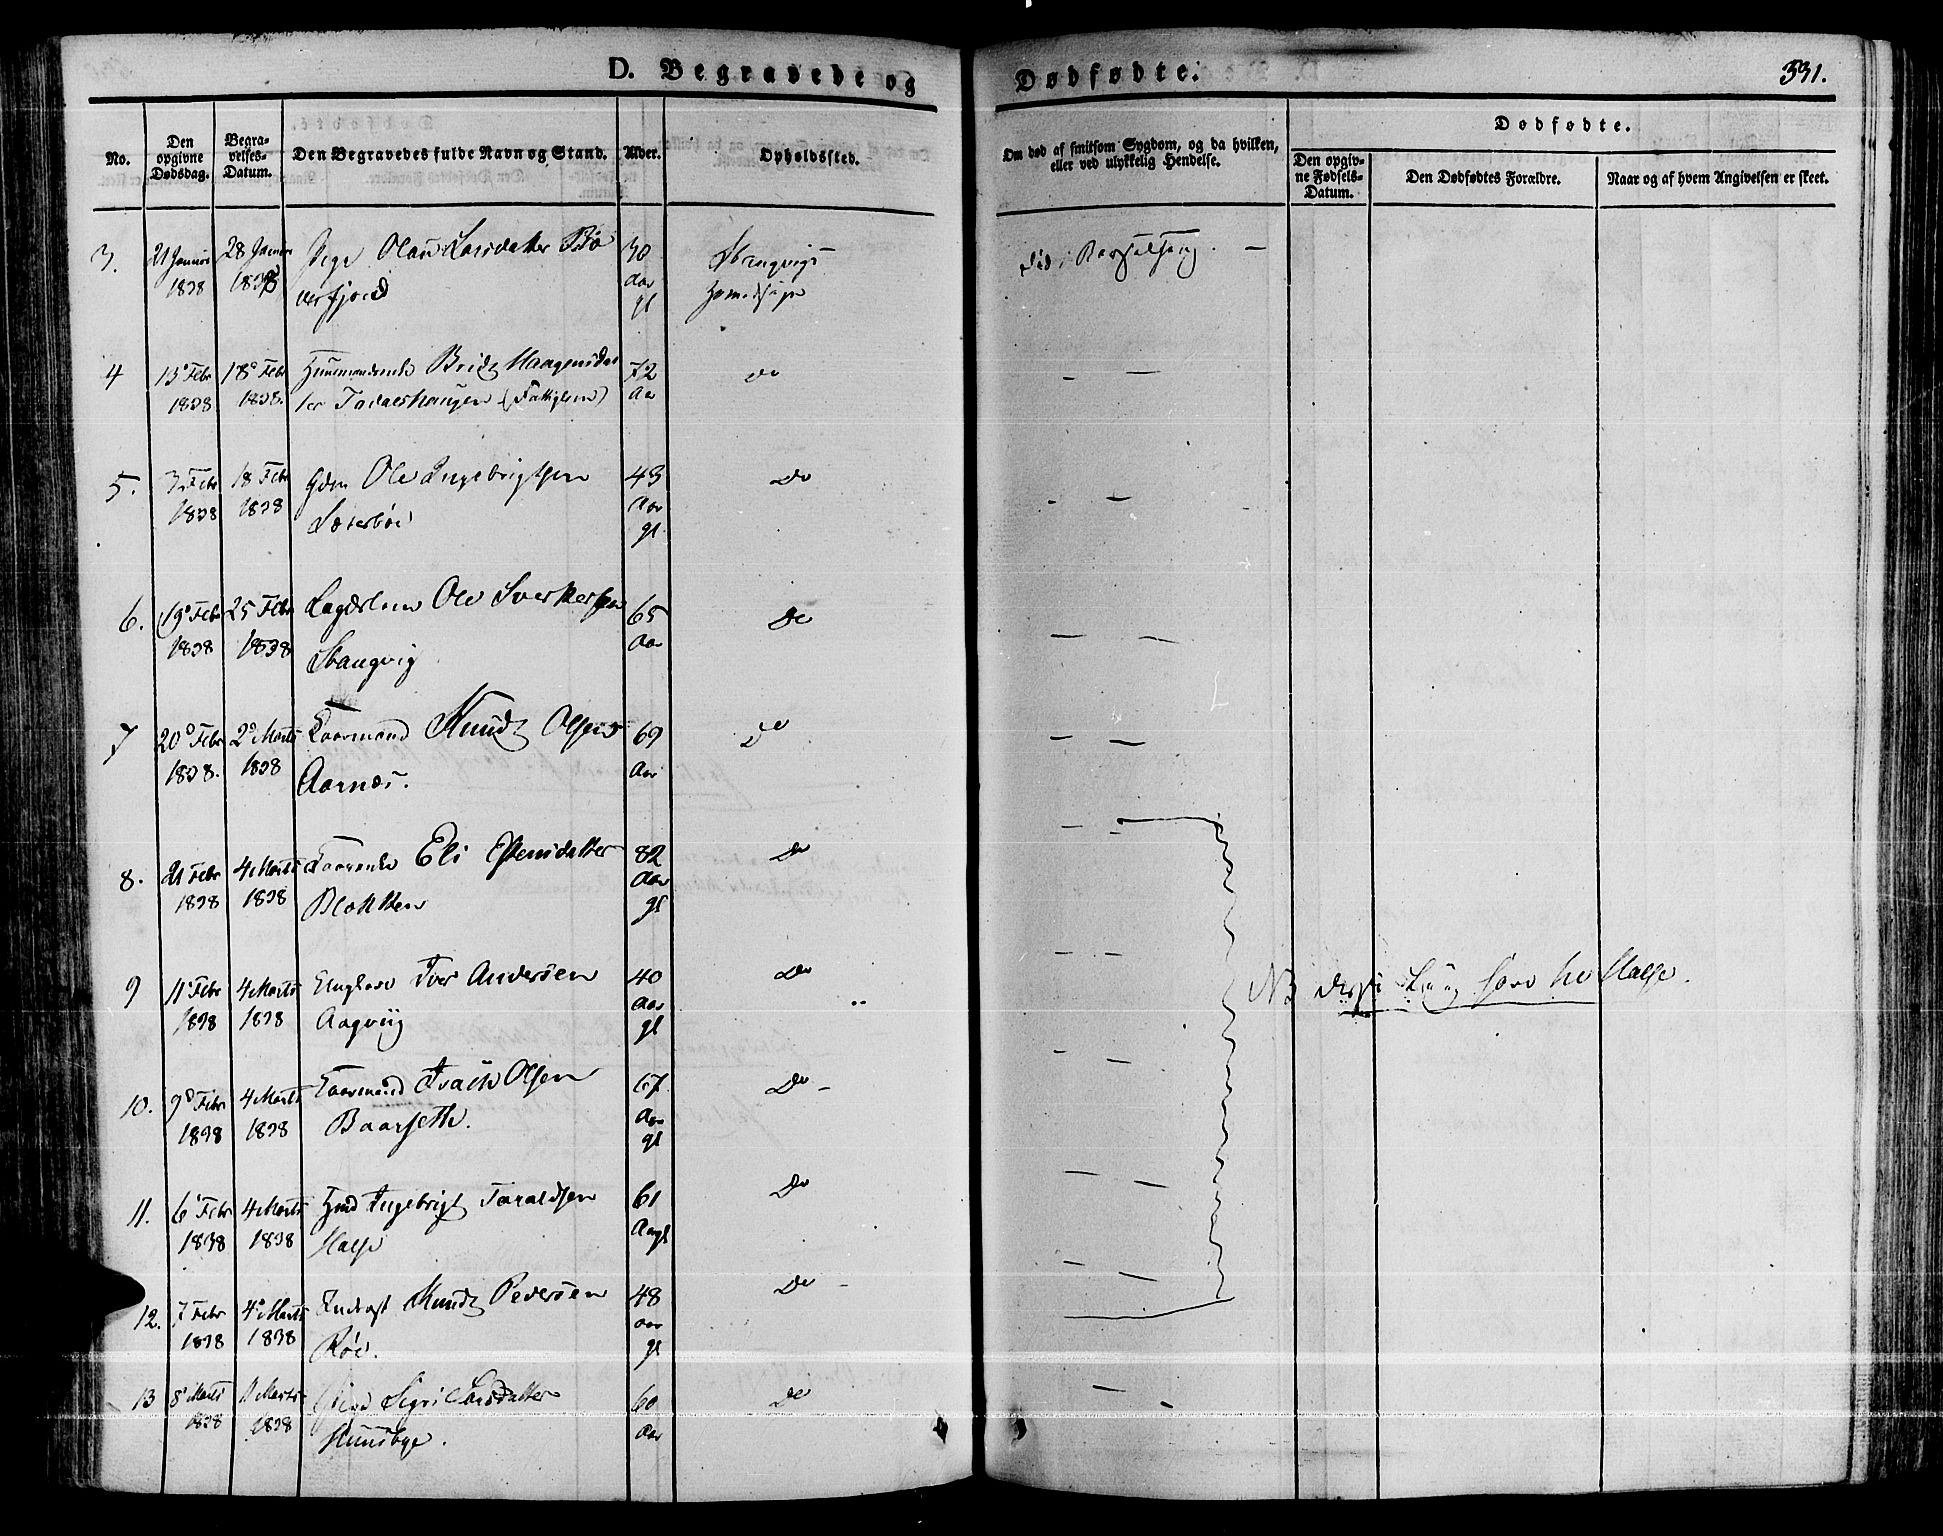 D. Begravede og
Dødfødte.
331.
No.
Den opgivne Dødsdag.
Begravelses-Datum.
Den Begravedes fulde Navn og Stand.
Alder.
Opholdssted.
Om død af smitsom Sygdom, og da hvilken, eller ved ulykkelig Hendelse.
Dødfødte.
Den opgivne Fødsels-Datum.
Den Dødfødtes Forældre.
Naar og af hvem Angivelsen er skeet.
3. 21 Januar 28 Januar Pige Olau Larsdatter Bø 30 Stangvigs
1838 1838 verfjord Aar gl Hovedsogn
død i Barselseng. —
4 13de Febr 18de Febr Huusmandsenke Brit Haagensdat 72 do — —
1838 1838. ter Tadaeshaugen (Fattiglem) Aar
5. 3 Febr 18 Febr Gdm Ole Ingebrigtsen 43 Do — —
1838 1838 Sæterbøe Aar gl.
6. 19de Febr 25 Febr Lægdslem Ole Sverkersen 65 Do — —
1838 1838 Stangvig Aar
7 20de Febr 2de Marts Kaarmand Knud Olsen 69 Do — —
1838. 1838 Aarnæs. Aar
8. 21 Febr 4 Marts Kaarenke Eli Estensdatter 82 Do — —
1838 1838 Blekken Aar gl
9 11te Febr 4 Marts Ungkarl Iver Andersen 40 Do — —
1838 1838 Aagviig Aar gl
NB disse Liig hos Halse.
10. 9de Febr 4 Marts Kaarmand Isach Olsen 67 Do — — —
1838 1838 Baarseth. Aar gl
11. 6te Febr 4 Marts Hmd Ingebrigt Taraldsen 61 Do — —
1838 1838 Halse Aar gl
12. 7 Febr 4de Marts Knud Pedersen 48 Do — — —
1838 1838 Røe. aar gl
13 8de Marts 11 Marts Pige Sigri Larsdatter 60 Do — -
1838 1838 Huusbye. Aar